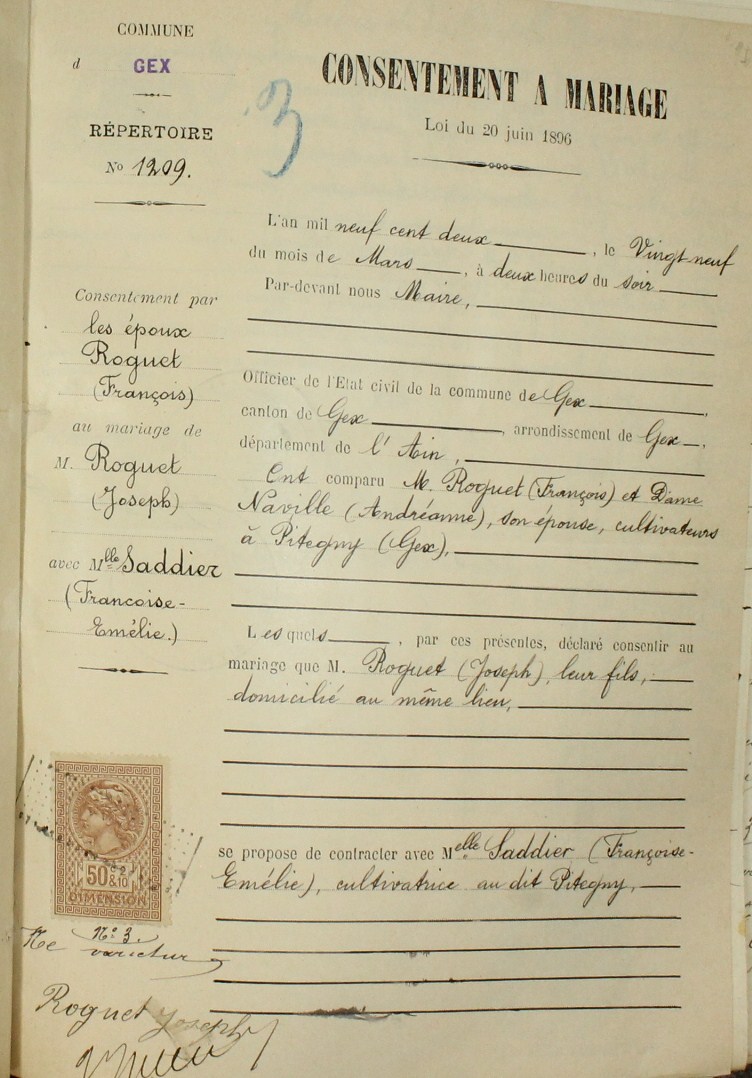 COMMUNE
d GEX
RÉPERTOIRE
No 1209.
3
CONSENTEMENT A MARIAGE
Loi du 20 juin 1896
L'an mil neuf cent deux, le Vingt neuf
du mois de Mars, à deux heures du soir
Par-devant nous Maire,
Officier de l'Etat civil de la commune de Gex,
canton de Gex, arrondissement de Gex,
département de l'Ain,
Ont comparu M. Roguet (François) et Dame
Naville (Andréanne), son épouse, cultivateurs
à Pitegny (Gex),
Lesquels, par ces présentes, déclaré consentir au
mariage que M. Roguet (Joseph), leur fils,
domicilié au même lieu,
se propose de contracter avec Melle Saddier (Françoise-
Emélie), cultivatrice au dit Pitegny,
Consentement par
les époux
Roguet
(François)
au mariage de
M. Roguet
(Joseph)
avec Mlle Saddier
(Francoise-
Emélie.)
50 & 10c
DIMENSION
No 3.
Ne varietur
Roguet Joseph